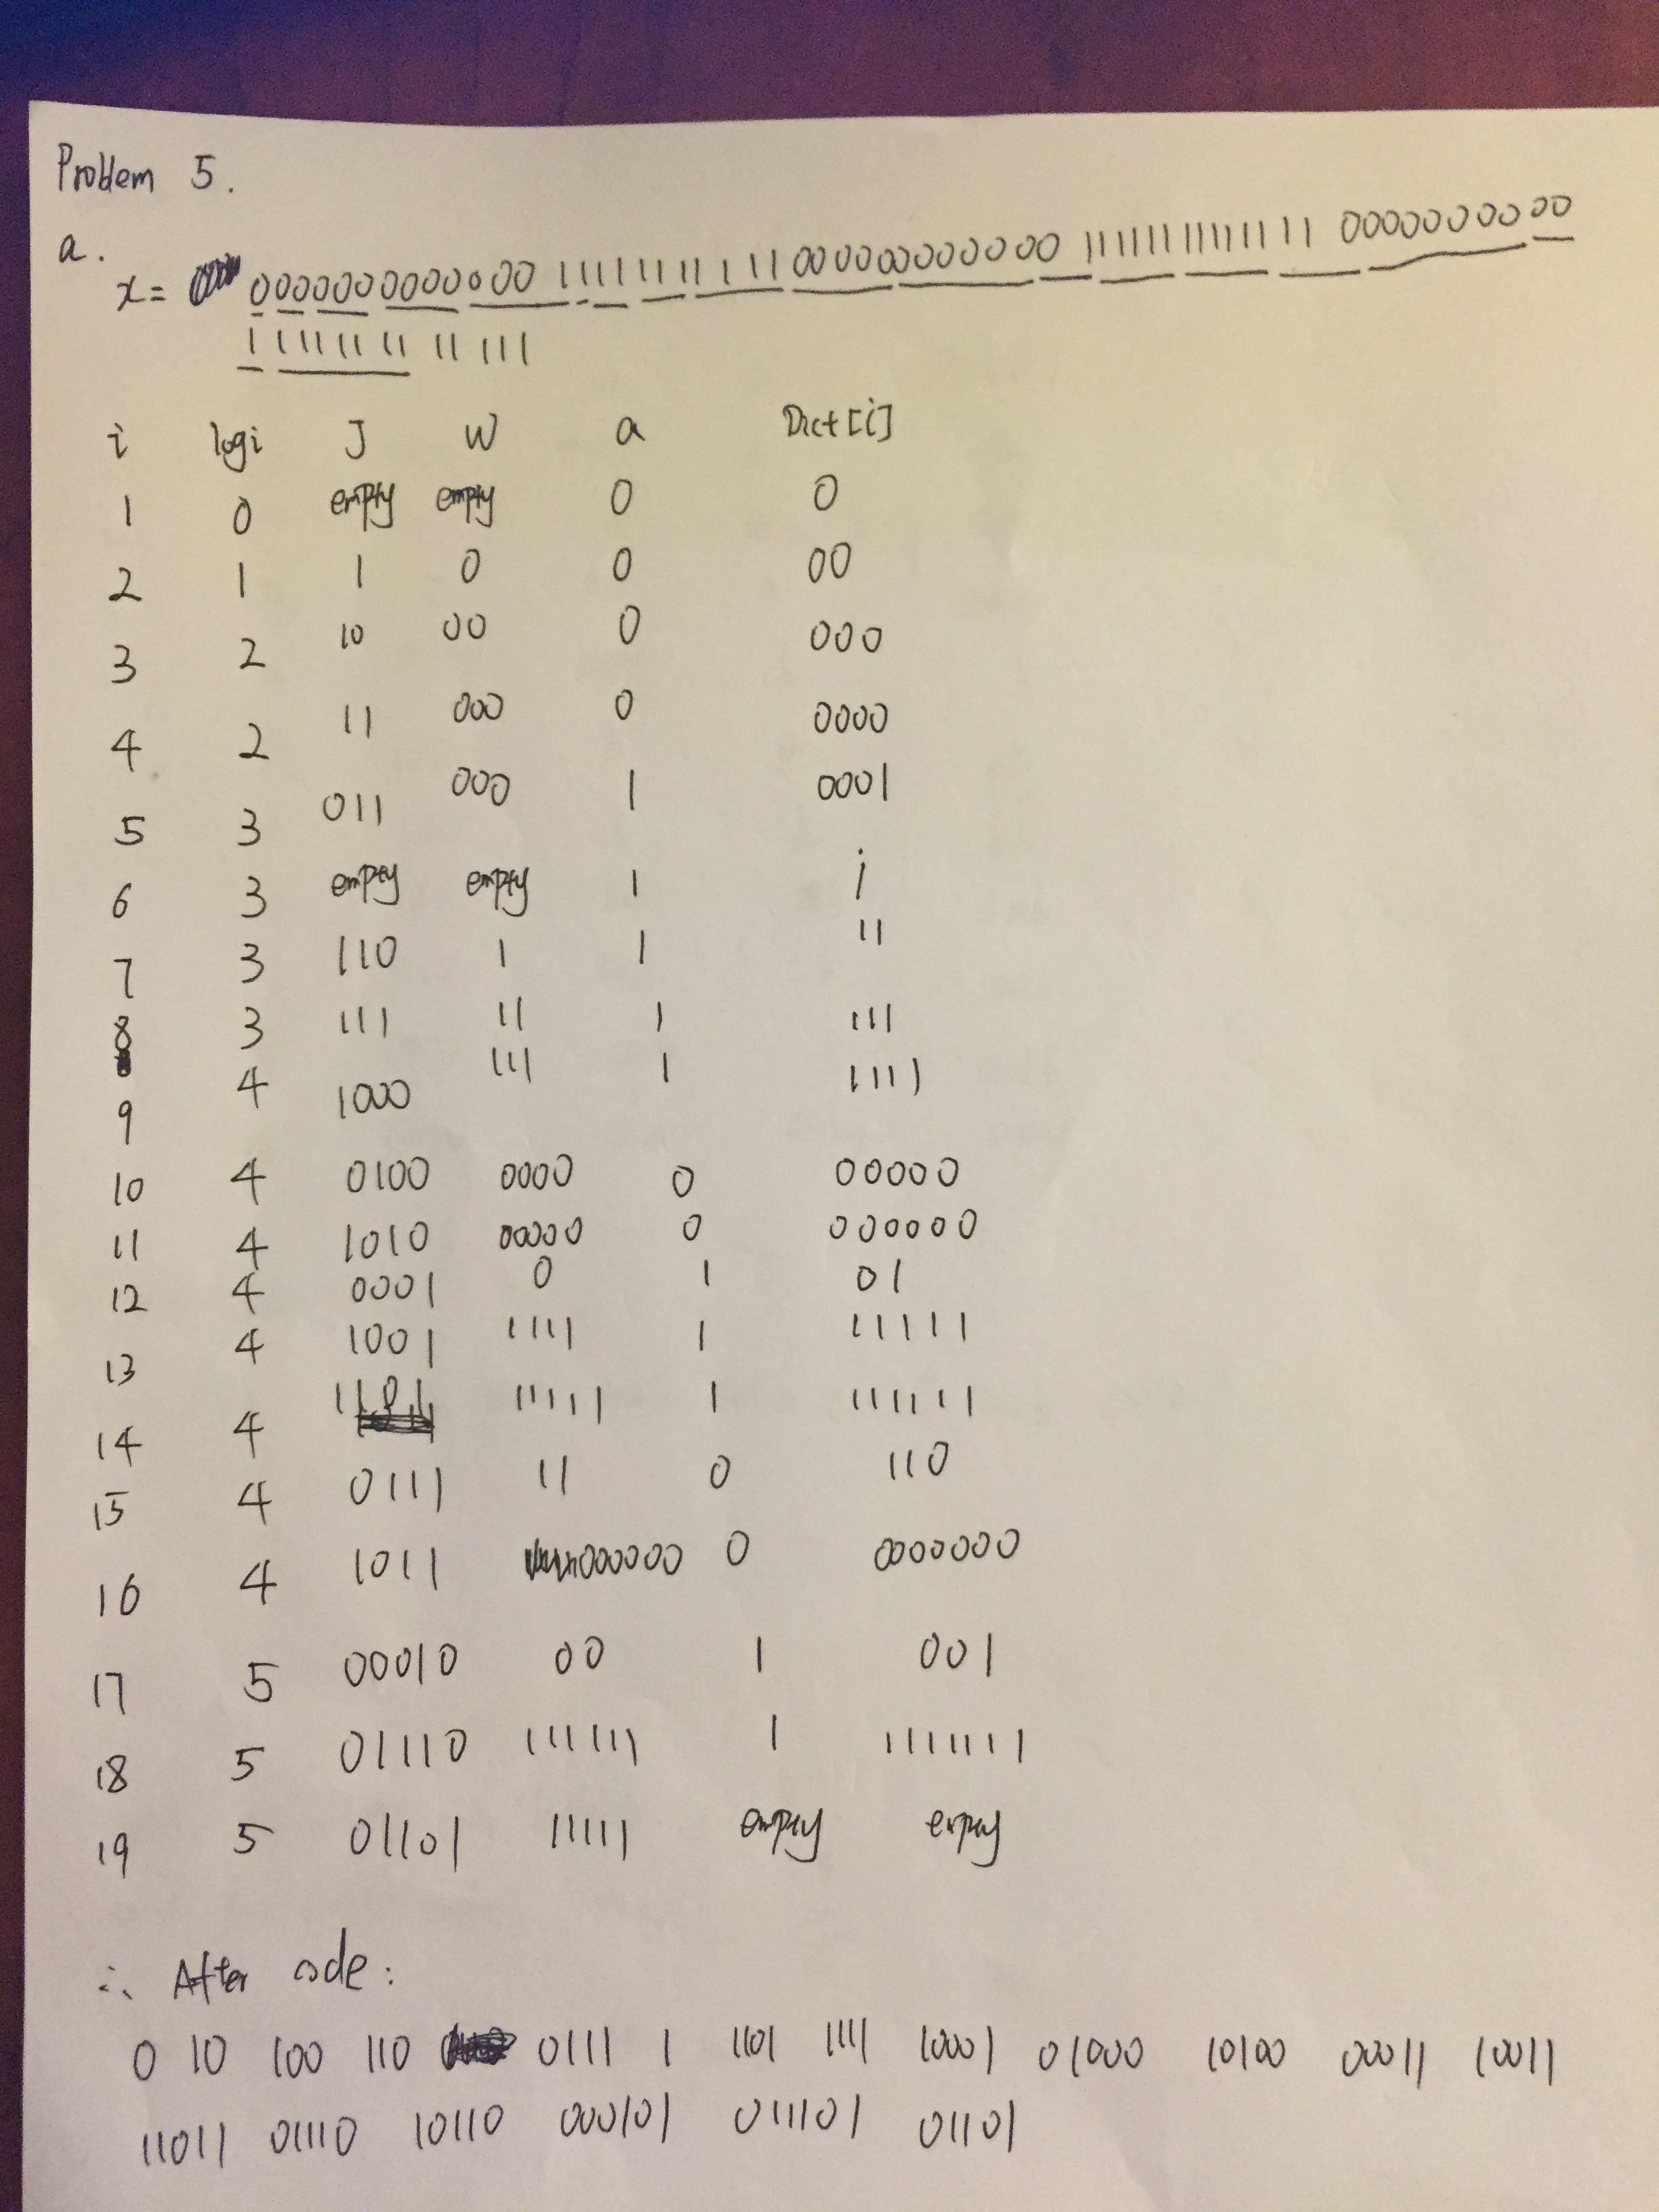 Problem 5.
a.
x= 0000000000000 11111111111 000000000000 11111111111111 0000000000
1111111111111
i logi J W a Dict[i]
1 0 empty empty 0 0
2 1 1 0 0 00
3 2 10 00 0 000
4 2 11 000 0 0000
5 3 011 000 1 0001
6 3 empty empty 1 1
7 3 110 1 1 11
8 3 111 11 1 111
9 4 1000 111 1 1111
10 4 0100 0000 0 00000
11 4 1010 00000 0 000000
12 4 0001 0 1 01
13 4 1001 1111 1 11111
14 4 1101 11111 1 111111
15 4 0111 11 0 110
16 4 1011 000000 0 0000000
17 5 00010 00 1 001
18 5 01110 111111 1 1111111
19 5 01101 11111 empty empty
∴ After code:
0 10 100 110 0111 1 1101 1111 10001 01000 10100 00011 10011
11011 01110 10110 000101 011101 01101